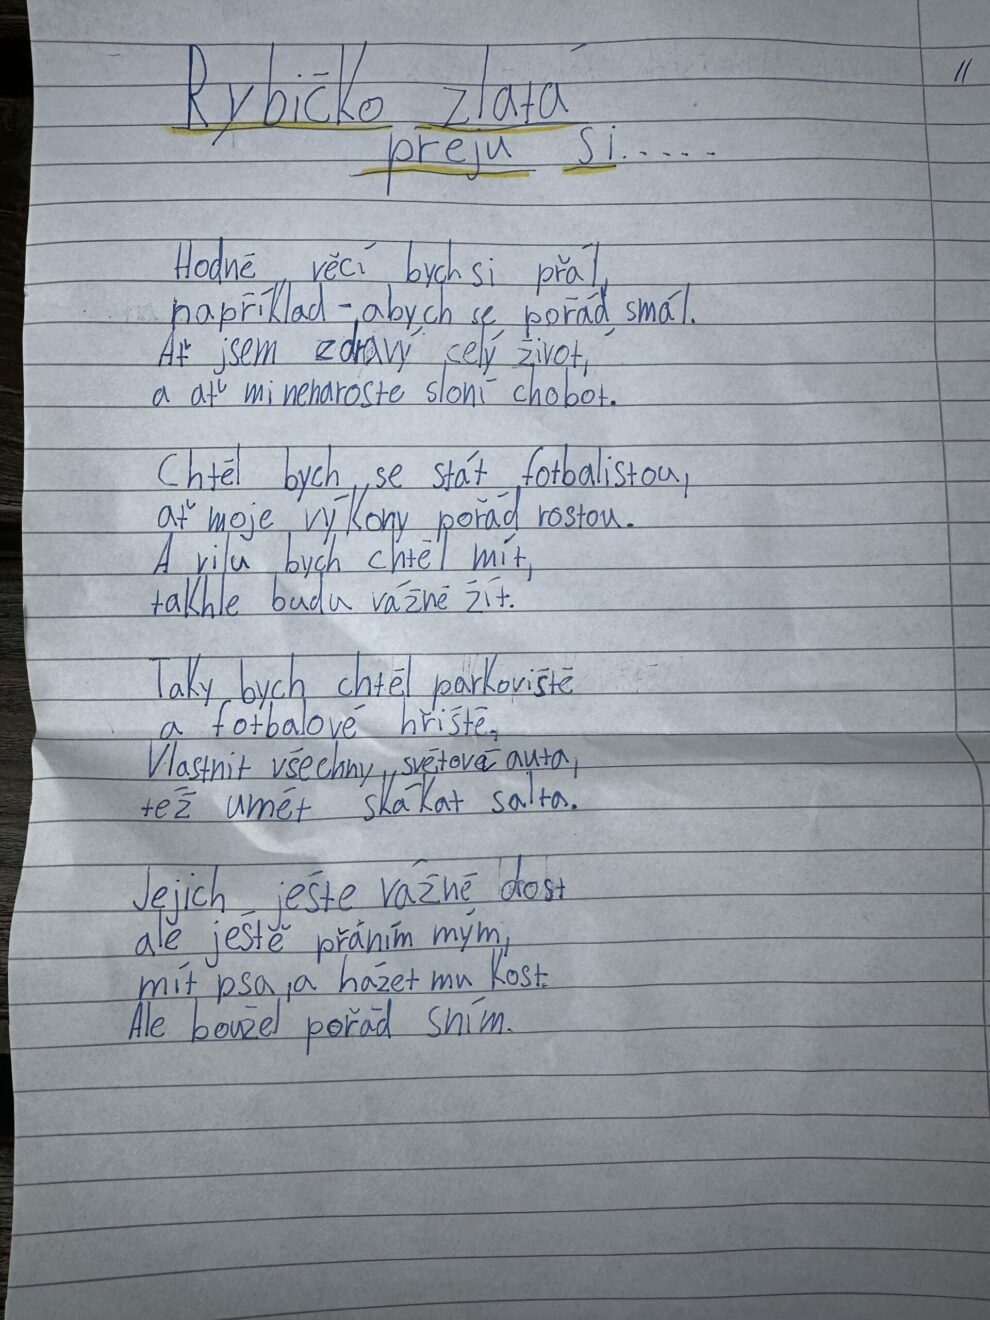 Rybičko zlatá
preju si.....
11
Hodně věcí bych si přál,
například - abych se pořád smál.
Ať jsem zdravý celý život,
a ať mi nenaroste sloní chobot.
Chtěl bych se stát fotbalistou,
ať moje výkony pořád rostou.
A vilu bych chtěl mít,
takhle budu vážně žít.
Taky bych chtěl parkoviště
a fotbalové hřiště,
Vlastnit všechny světová auta,
též umět skákat salta.
Jejich ješte vážně dost
ale ještě přáním mým,
mít psa, a házet mu kost.
Ale boužel pořád sním.